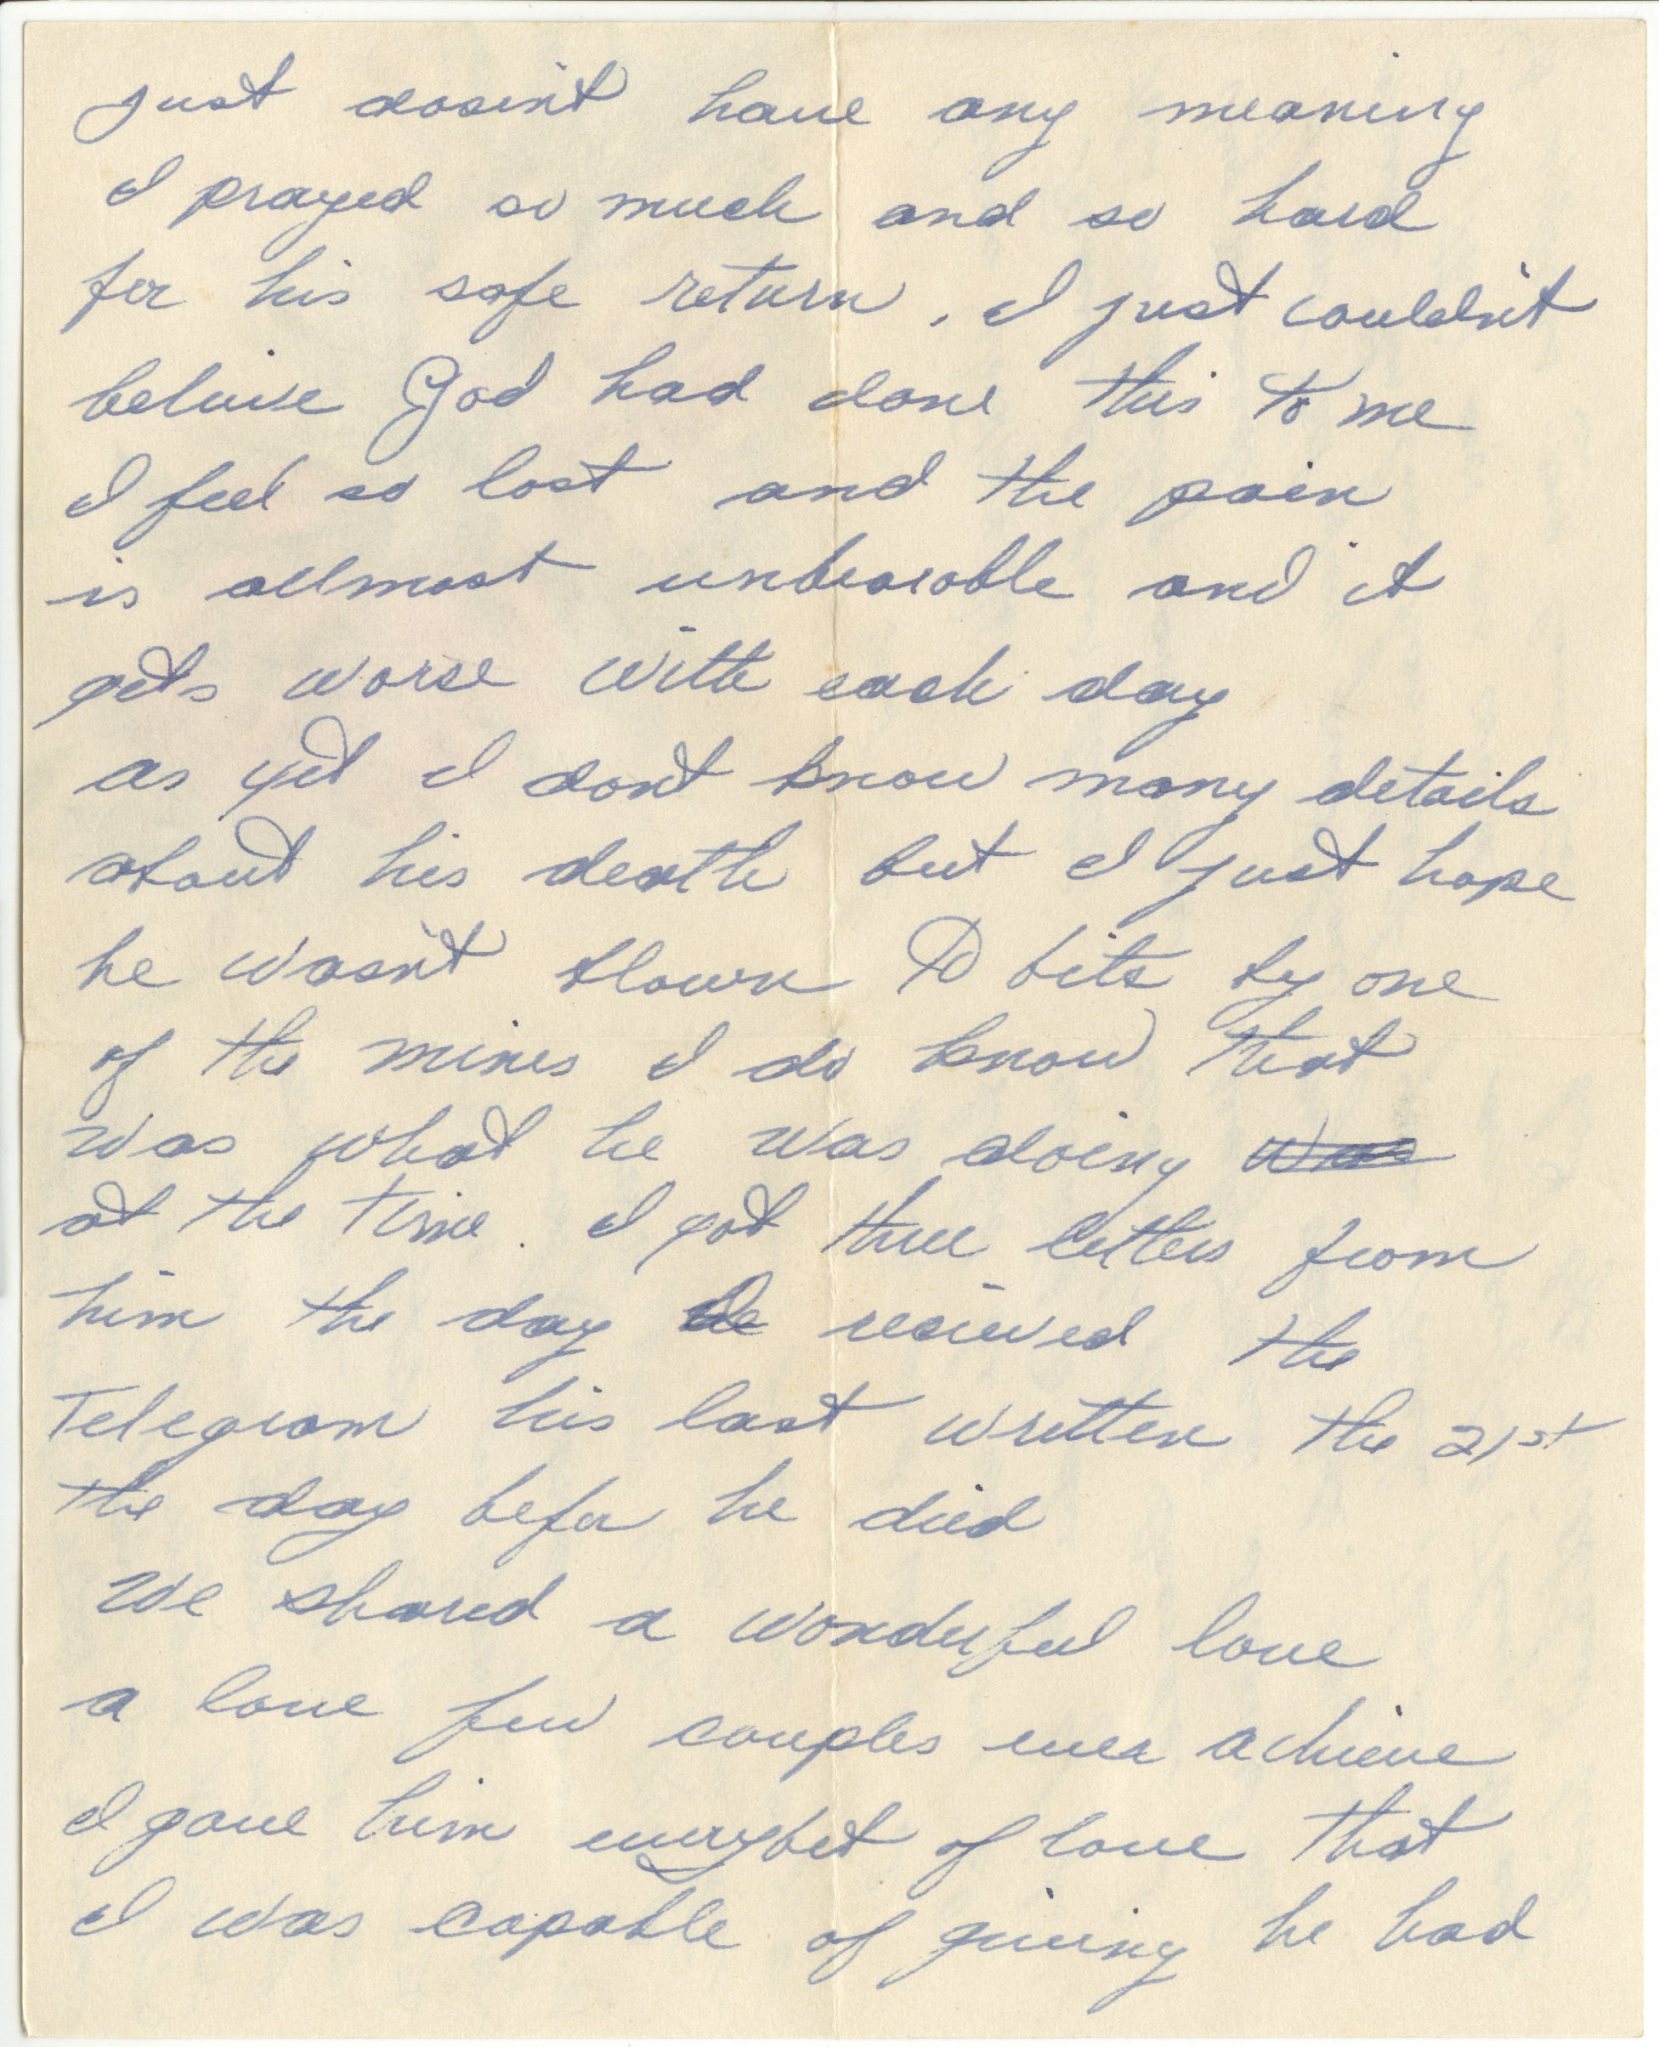 just dosen't have any meaning
I prayed so much and so hard
for his safe return. I just couldn't
beleive God had done this to me
I feel so lost and the pain
is allmost unbearable and it
gets worse with each day
as yet I don't know many details
about his death but I just hope
he wasn't blown to bits by one
of the mines I do know that
was what he was doing was
at the time. I got three letters from
him the day recieved the
Telegram his last written the 21st
the day befor he died
We shared a wonderful love
a love few couples ever achieve
I gave him everybit of love that
I was capable of giving he had